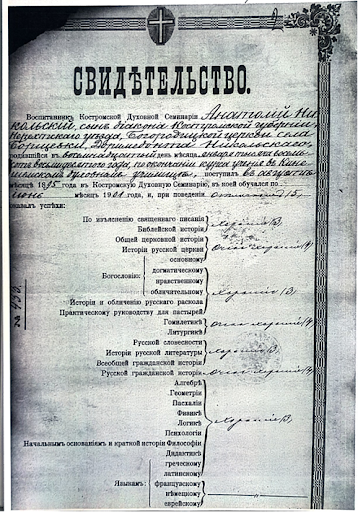 СВИДѢТЕЛЬСТВО.
Воспитанникъ Костромской Духовной Семинаріи Анатолій Ни-
кольскій, сынъ діакона Костромской губерніи,
Нерехтскаго уѣзда, Богородицкой церкви села
Доримедонта Никольскаго,
родившійся въ восемнадцатый день мѣсяца января тысяча восемь-
сотъ восемьдесятъ года, по окончаніи курса ученія въ Кине-
шемскомъ духовномъ училищѣ, поступилъ въ августѣ
мѣсяцѣ 1895 года въ Костромскую Духовную Семинарію, въ коей обучался по
іюнь мѣсяцъ 1901 года и, при поведеніи отличномъ (5),
оказалъ успѣхи:
По изъясненію священнаго писанія
Библейской исторіи
хорошіе (3)
Общей церковной исторіи
Исторіи русской церкви
очень хорошіе (4)
Богословію:
основному
догматическому
нравственному
обличительному
хорошіе (3)
Исторіи и обличенію русскаго раскола
Практическому руководству для пастырей
Гомилетикѣ
Литургикѣ
очень хорошіе (4)
Русской словесности
Исторіи русской литературы
хорошіе (3)
Всеобщей гражданской исторіи
Русской гражданской исторіи
очень хорошіе (4)
Алгебрѣ
Геометріи
Пасхаліи
Физикѣ
Логикѣ
Психологіи
хорошіе (3)
Начальнымъ основаніямъ и краткой исторіи Философіи
Дидактикѣ
Языкамъ:
греческому
латинскому
французскому
нѣмецкому
еврейскому